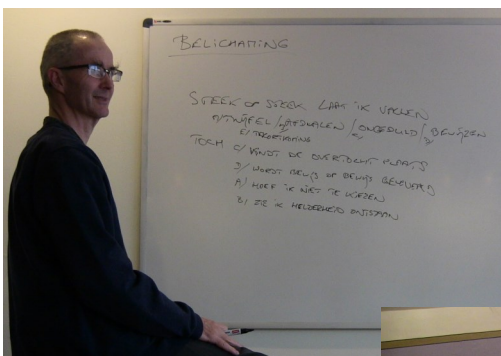 BELICHAMING
STEEK OP STEEK LAAT IK VALLEN
A/ TWIJFEL / B/ HERHALEN / C/ ONGEDULD / D/ BEWIJZEN
E/ TEGENSTAND
TOCH C/ VINDT DE OVERTOCHT PLAATS
D/ WORDT BEWIJS OP BEWIJS GELEVERD
A/ HOEF IK NIET TE KIEZEN
B/ ZIE IK HELDERHEID ONTSTAAN